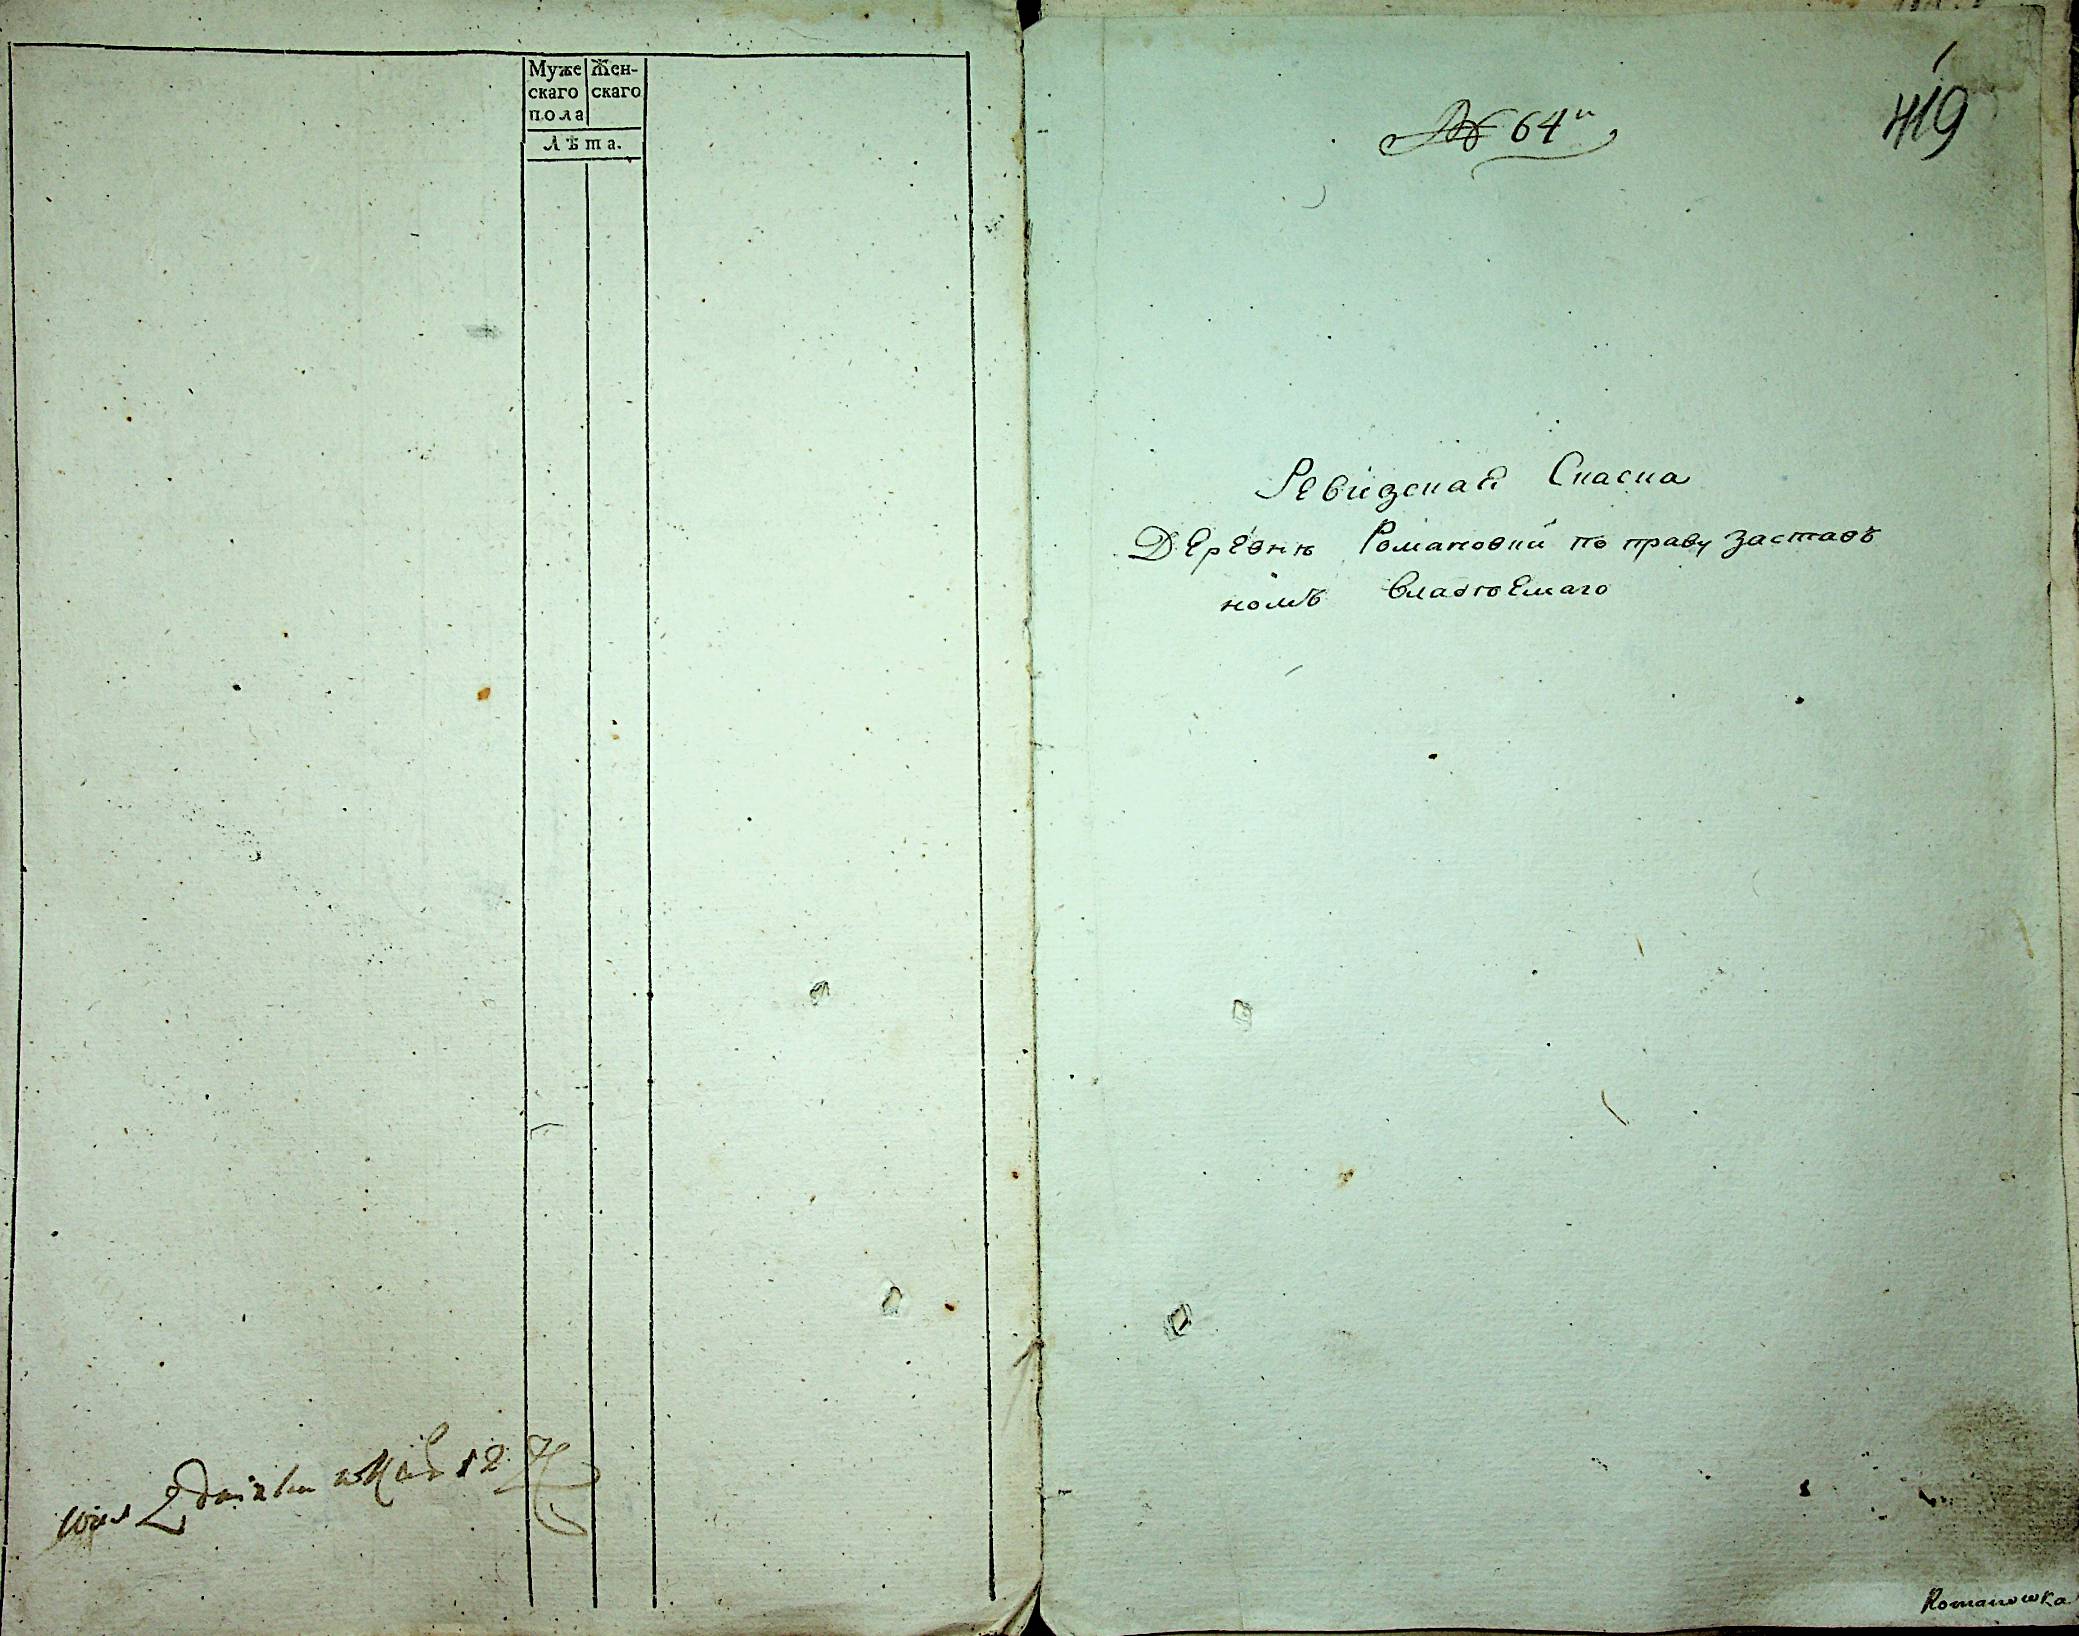 Муже Жен-
скаго скаго
пола
Лѣта.
№ 64й
419
Ревизская Скаска
Деревнѣ Романовки по праву заставъ
номъ владѣемаго
Romanowka